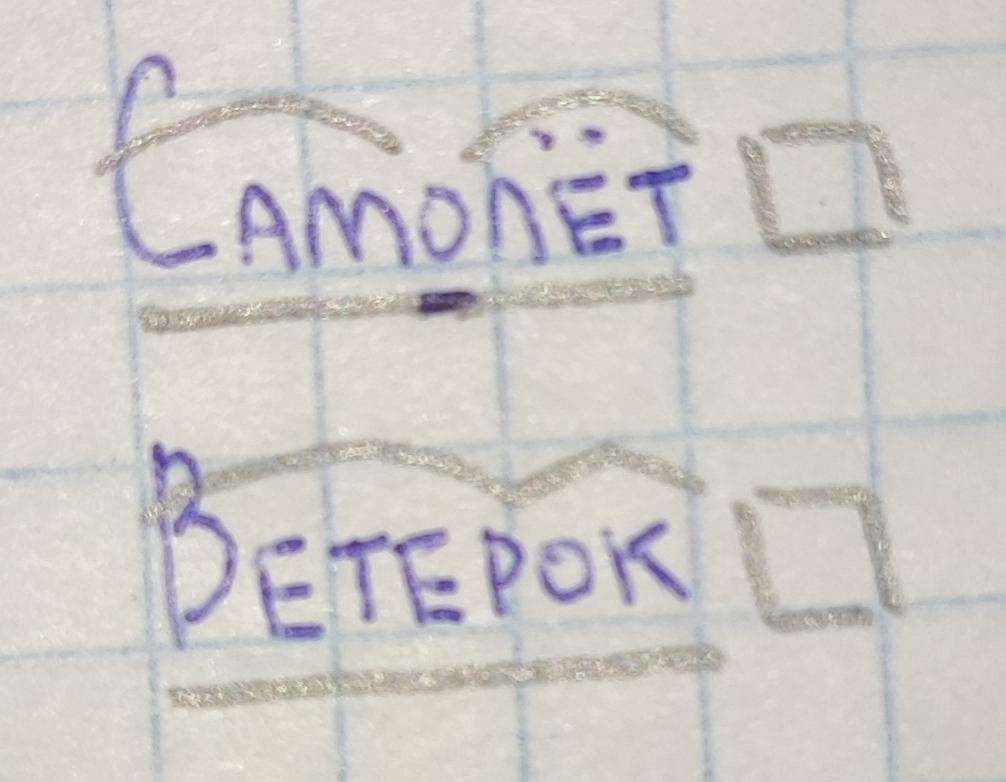 Самолёт
Ветерок